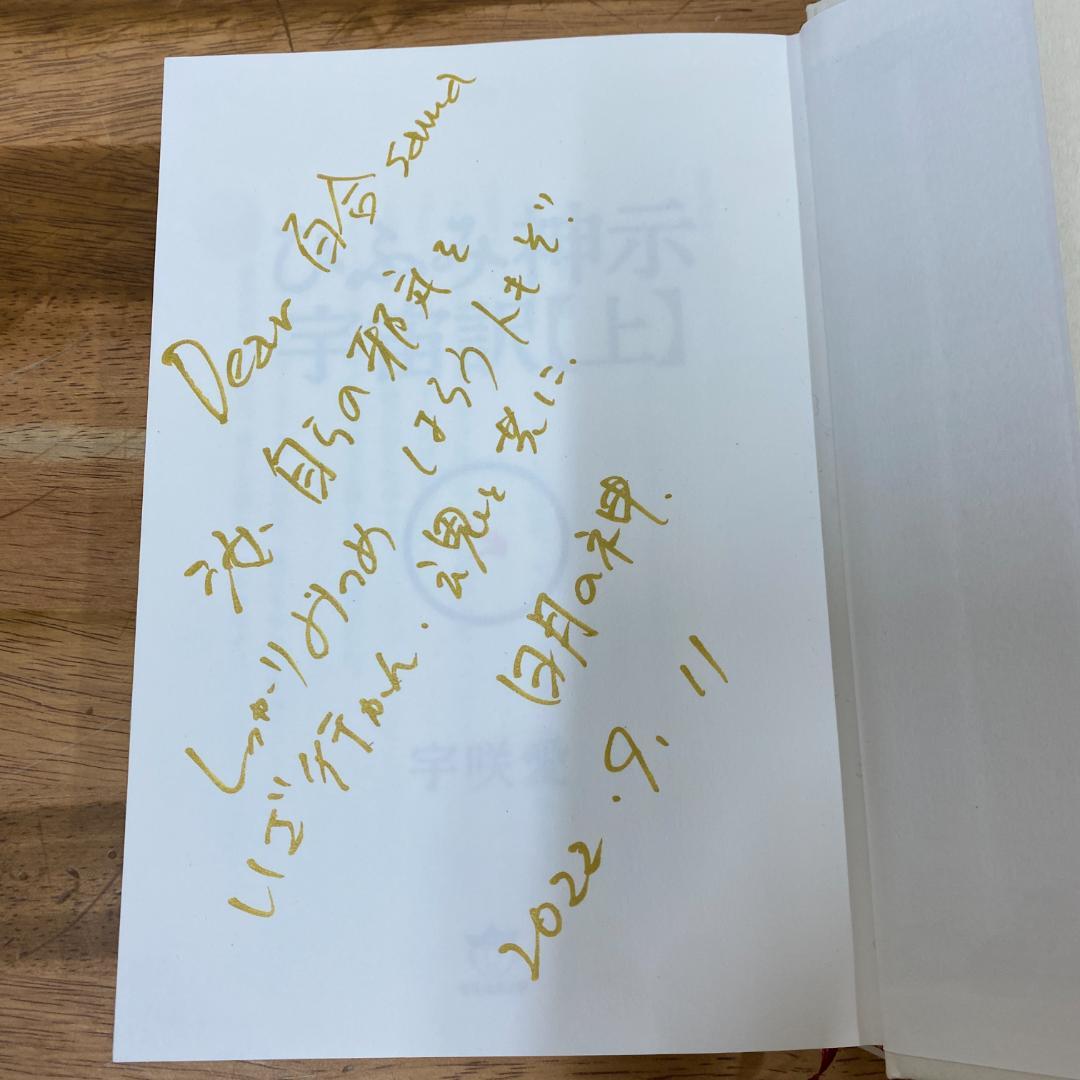 Dear 百合 sama
汝、自らの邪気を
しっかりみつめ はらう
いざ行かん. 魂と共に.
日月の神.
2022.9.11